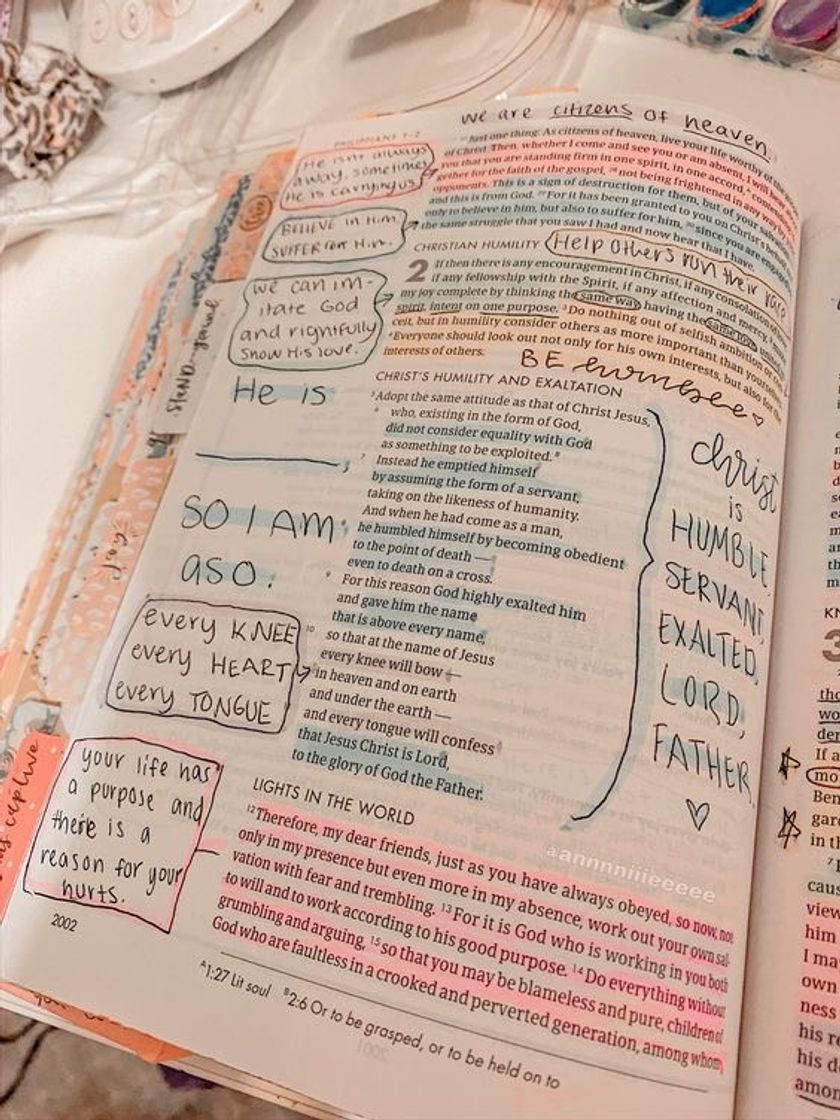 we are citizens of heaven.
PHILIPPIANS 1–2
He isn't always
away. sometimes
He is carrying us
BELIEVE in Him
SUFFER FOR Him.
we can im-
itate God
and rightfully
show His love.
He is
,
SO I AM
aso.
every KNEE
every HEART
every TONGUE
your life has
a purpose and
there is a
reason for your
hurts.
2002
Just one thing: As citizens of heaven, live your life worthy of the
of Christ. Then, whether I come and see you or am absent, I will hear
you that you are standing firm in one spirit, in one accord,ᴬ
gether for the faith of the gospel, ²⁸ not being frightened in any way by
opponents. This is a sign of destruction for them, but of your
and this is from God. ²⁹ For it has been granted to you on Christ's
only to believe in him, but also to suffer for him, ³⁰ since you are
the same struggle that you saw I had and now hear that I have.
CHRISTIAN HUMILITY
Help others run their race
2 If then there is any encouragement in Christ, if any consolation of
if any fellowship with the Spirit, if any affection and mercy,
my joy complete by thinking the same way, having the same love,
spirit, intent on one purpose. ³ Do nothing out of selfish ambition or
ceit, but in humility consider others as more important than yourselves.
⁴ Everyone should look out not only for his own interests, but also for the
interests of others.
BE humble ♡
CHRIST'S HUMILITY AND EXALTATION
⁵ Adopt the same attitude as that of Christ Jesus,
⁶ who, existing in the form of God,
did not consider equality with God
as something to be exploited.ᴮ
⁷ Instead he emptied himself
by assuming the form of a servant,
taking on the likeness of humanity.
And when he had come as a man,
⁸ he humbled himself by becoming obedient
to the point of death —
even to death on a cross.
⁹ For this reason God highly exalted him
and gave him the name
that is above every name,
¹⁰ so that at the name of Jesus
every knee will bow —
in heaven and on earth
and under the earth —
¹¹ and every tongue will confess
that Jesus Christ is Lord,
to the glory of God the Father.
christ
is
HUMBLE,
SERVANT,
EXALTED,
LORD,
FATHER.
♡
LIGHTS IN THE WORLD
¹² Therefore, my dear friends, just as you have always obeyed, so now, not
only in my presence but even more in my absence, work out your own sal-
vation with fear and trembling. ¹³ For it is God who is working in you both
to will and to work according to his good purpose. ¹⁴ Do everything without
grumbling and arguing, ¹⁵ so that you may be blameless and pure, children of
God who are faultless in a crooked and perverted generation, among whom
ᴬ1:27 Lit soul ᴮ2:6 Or to be grasped, or to be held on to
aannnniiieeeee
3
If a
Ben
in th
view
him
I ma
own
ness
his re
his d